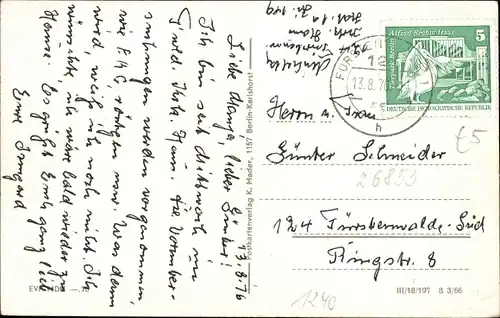 Fü., 13.8.76
Liebe Manya, lieber Günter!
Ich bin seit Mittwoch im
Krkh. Ham. Die Vorunter-
suchungen werden vorgenommen
wie EKG, röntgen usw. Was dann
wird weiß ich noch nicht. Ich
wünschte, ich wäre bald wieder zu
Hause. Es grüßt Euch ganz lieb
Eure Irmgard
EVP
Postkartenverlag K. Mader, 1157 Berlin-Karlshorst
Alfred-Brehm-Haus
5
DEUTSCHE DEMOKRATISCHE REPUBLIK
13.8.7
h
Herrn u. Frau
Günter Schneider
26853
124 Fürstenwalde-Süd
Ringstr. 8
1240
III/18/197 B 3/66
£5